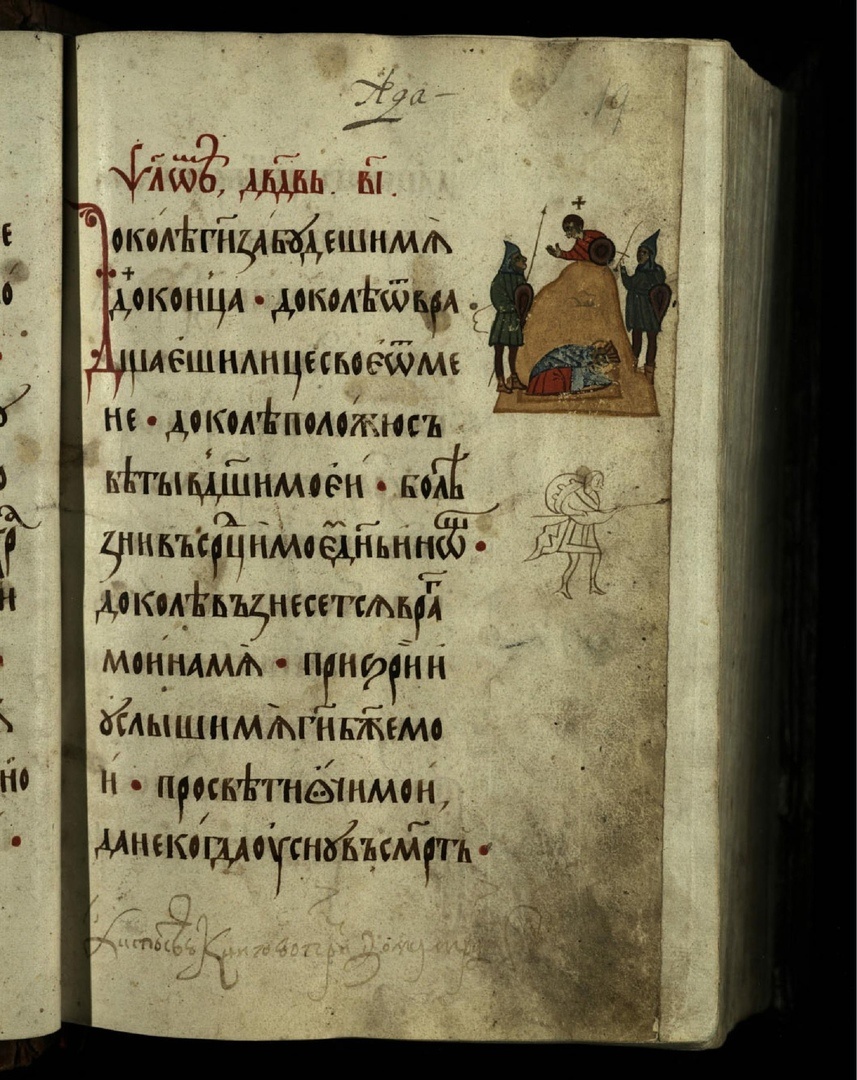 Ада
14
ѱл҃ѡмъ, дв҃дьвъ. в҃і.
Доколѣ гн҃ забꙋдеши мѧ̀
до конца • доколѣ ѿвра •
щаеши лице свое ѿ ме
не • доколѣ положю съ
вѣты въ дш҃и моеи • болѣ
зни въ ср҃ци моем дн҃ь и нѡщь •
доколѣ възнесетсѧ враг
мои на мѧ̀ • призри и
ꙋслыши мѧ̀ гн҃ бж҃е мо
и • просвѣти ѻчи мои,
да не когда оуснꙋ въ смр҃ть •